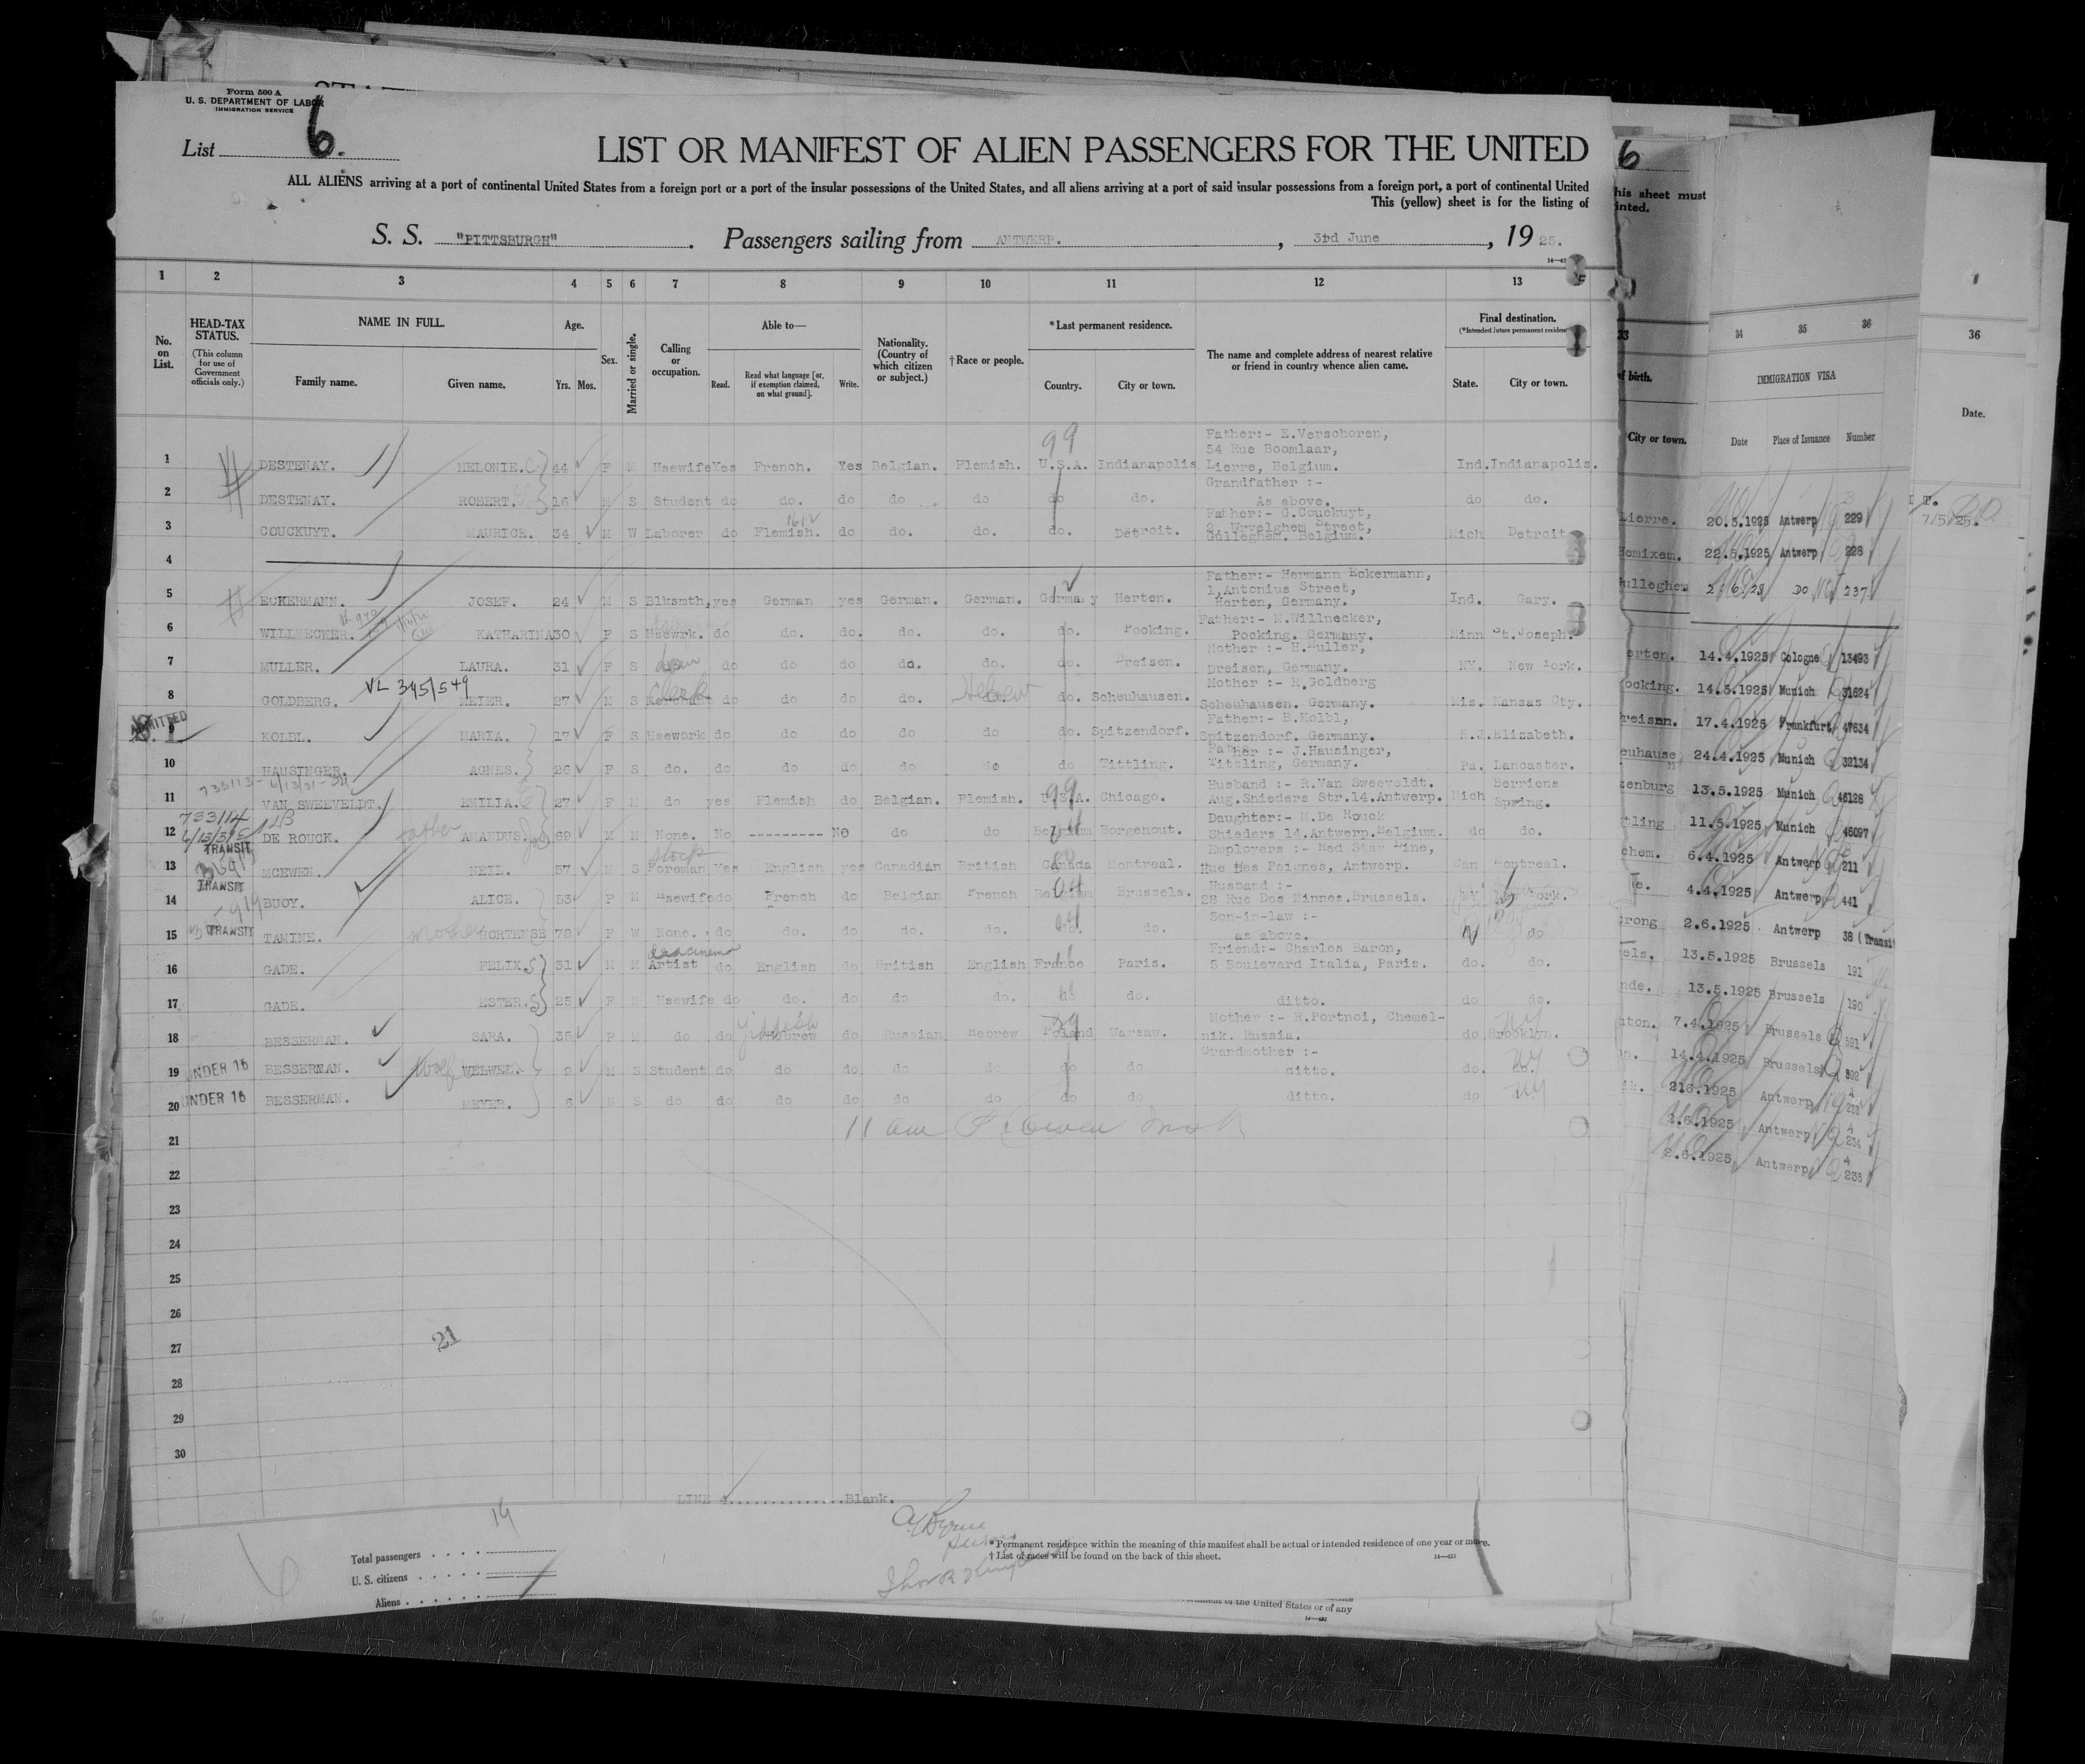 Form 500 A
U. S. DEPARTMENT OF LABOR
IMMIGRATION SERVICE
List 6.
LIST OR MANIFEST OF ALIEN PASSENGERS FOR THE UNITED
ALL ALIENS arriving at a port of continental United States from a foreign port or a port of the insular possessions of the United States, and all aliens arriving at a port of said insular possessions from a foreign port, a port of continental United
This (yellow) sheet is for the listing of
S. S. "PITTSBURGH". Passengers sailing from ANTWERP., 3rd June, 1925.
1 2 3 4 5 6 7 8 9 10 11 12 13
No. on List.
HEAD-TAX STATUS. (This column for use of Government officials only.)
NAME IN FULL.
Family name. Given name.
Age.
Yrs. Mos.
Sex.
Married or single.
Calling or occupation.
Able to—
Read. Read what language [or, if exemption claimed, on what ground]. Write.
Nationality. (Country of which citizen or subject.)
†Race or people.
*Last permanent residence.
Country. City or town.
The name and complete address of nearest relative or friend in country whence alien came.
Final destination.
(*Intended future permanent residence
State. City or town.
1 DESTENAY. MELONIE. 44 F M Hsewife Yes French. Yes Belgian. Flemish. U.S.A. Indianapolis Father:- E.Verschoren, 54 Rue Boomlaar, Lierre, Belgium. Ind. Indianapolis.
99
2 DESTENAY. ROBERT. 16 M S Student do do. do do do do do. Grandfather :- As above. do do.
3 COUCKUYT. MAURICE. 34 M W Laborer do Flemish. do do. do. do. Detroit. Father:- G.Couckuyt, Gulleghem. Belgium. Mich Detroit
4
5 ECKERMANN. JOSEF. 24 M S Blksmth, yes German yes German. German. Germany Herten. Father:- Hermann Eckermann, 1,Antonius Street, Herten, Germany. Ind. Gary.
6 WILLNECKER. KATHARINA 30 F S Hsewrk. do do. do. do. do. do. Pocking. Father:- M.Willnecker, Pocking. Germany. Minn St.Joseph.
7 MULLER. LAURA. 31 F S do do do do. do. do. Dreisen. Mother :- H.Muller, Dreisen, Germany. NY. New York.
8 GOLDBERG. VL 345/549 MEIER. 27 M S Clerk do do do do. Hebrew do. Scheuhausen. Mother :- R.Goldberg Scheuhausen. Germany. Mis. Kansas Cty.
ADMITTED
9 KOLBL. MARIA. 17 F S Hsework do do do do do do. Spitzendorf. Father:- B.Kolbl, Spitzendorf. Germany. N.J. Elizabeth.
10 HAUSINGER. AGNES. 26 F S do. do do do do do do Tittling. Father :- J.Hausinger, Tittling, Germany. Pa. Lancaster.
733113- 6/13/31-
11 VAN SWEEVELDT. EMILIA. 27 F M do yes Flemish do Belgian. Flemish. U.S.A. Chicago. Husband :- R.Van Sweeveldt. Aug.Shieders Str.14.Antwerp. Mich Berriens Spring.
99
733114
12 DE ROUCK. father AMANDUS. 69 M M None. No --------- No do do Belgium Borgehout. Daughter:- M.De Rouck Shieders 14.Antwerp.Belgium. do do.
TRANSIT
13 MCEWEN. NEIL. 57 M S Foreman Yes English yes Canadian British Canada Montreal. Employers :- Red Star Line, Rue Des Peignes, Antwerp. Can Montreal.
TRANSIT
14 BUOY. ALICE. 53 F M Hsewife do French do Belgian French Belgium Brussels. Husband :- 28 Rue Des Minnes.Brussels. NY New York.
TRANSIT
15 TAMINE. mother HORTENSE 78 F W None. do do. do. do. do. do. do. Son-in-law :- as above. do
16 GADE. FELIX. 31 M M Artist do English do British English France Paris. Friend:- Charles Baron, 5 Boulevard Italia, Paris. do. do.
17 GADE. ESTER. 25 F M Hsewife do do. do do do. do do. ditto. do do.
18 BESSERMAN. SARA. 35 F M do do Yiddish Hebrew do Russian Hebrew Poland Warsaw. Mother :- R.Portnoi, Chemelnik. Russia. do Brooklyn.
19 UNDER 16 BESSERMAN. Wolf WELWEL. 9 M S Student do do do do do do do Grandmother :- ditto. do. do.
20 UNDER 16 BESSERMAN. MEYER. 6 M S do do do do do do do do ditto. do
21
22
23
24
25
26
27
28
29
30
21
LINE 4..............Blank.
Total passengers
U. S. citizens
Aliens
*Permanent residence within the meaning of this manifest shall be actual or intended residence of one year or more.
†List of races will be found on the back of this sheet.
of the United States or of any
6
his sheet must
inted.
33 34 35 36
of birth.
IMMIGRATION VISA
City or town. Date Place of Issuance Number
Lierre. 20.5.1925 Antwerp 229
Hemixem. 22.5.1925 Antwerp 228
ulleghem Do 237
erten. 14.4.1925 Cologne 13493
ocking. 14.5.1925 Munich 31624
reisen. 17.4.1925 Frankfurt 47634
euhause n 24.4.1925 Munich 32134
zenburg 13.5.1925 Munich 46128
tling 11.5.1925 Munich 46097
chem. 6.4.1925 Antwerp 211
e. 4.4.1925 Antwerp 441
trong 2.6.1925 Antwerp 38 (Transit
els. 13.5.1925 Brussels 191
nde. 13.5.1925 Brussels 190
nton. 7.4.1925 Brussels 591
n. 14.4.1925 Brussels 592
ik. 2.6.1925 Antwerp 233
2.6.1925 Antwerp 234
2.6.1925 Antwerp 235
36
Date.
7/5/25.